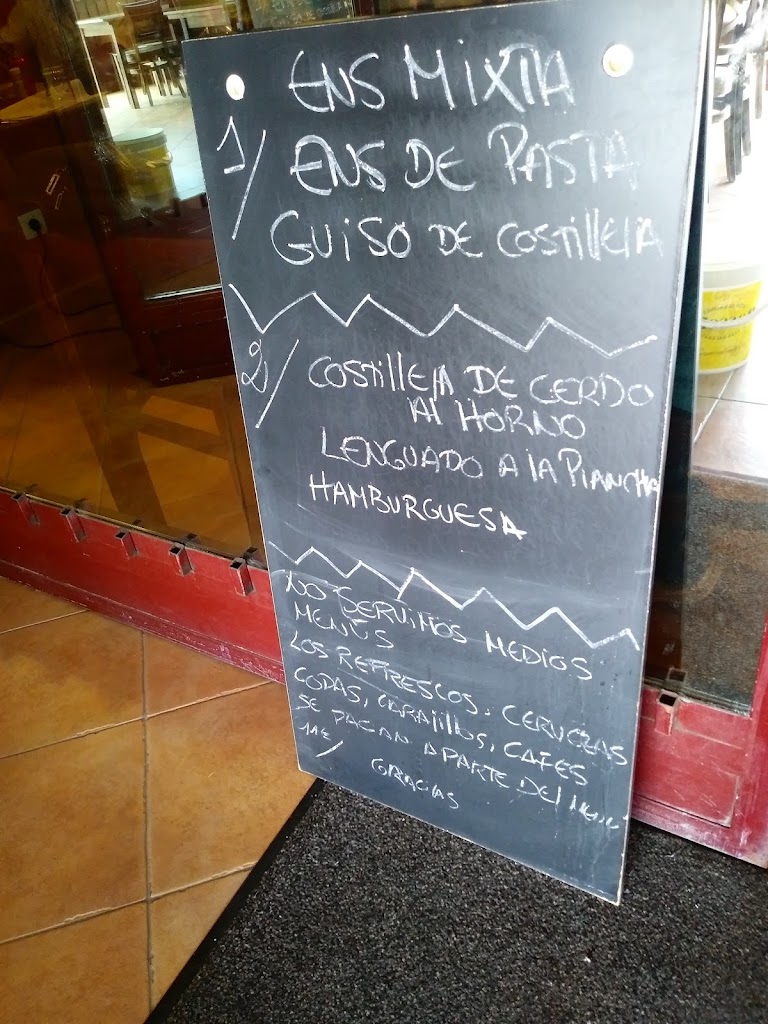 ENS MIXTA
1/ ENS DE PASTA
GUISO DE COSTILLEJA
2/ COSTILLEJA DE CERDO
AL HORNO
LENGUADO A LA PLANCHA
HAMBURGUESA
NO SERVIMOS MEDIOS
MENUS
LOS REFRESCOS, CERVEZAS
COPAS, CARAJILLOS, CAFES
SE PAGAN APARTE DEL MENU
11€
GRACIAS